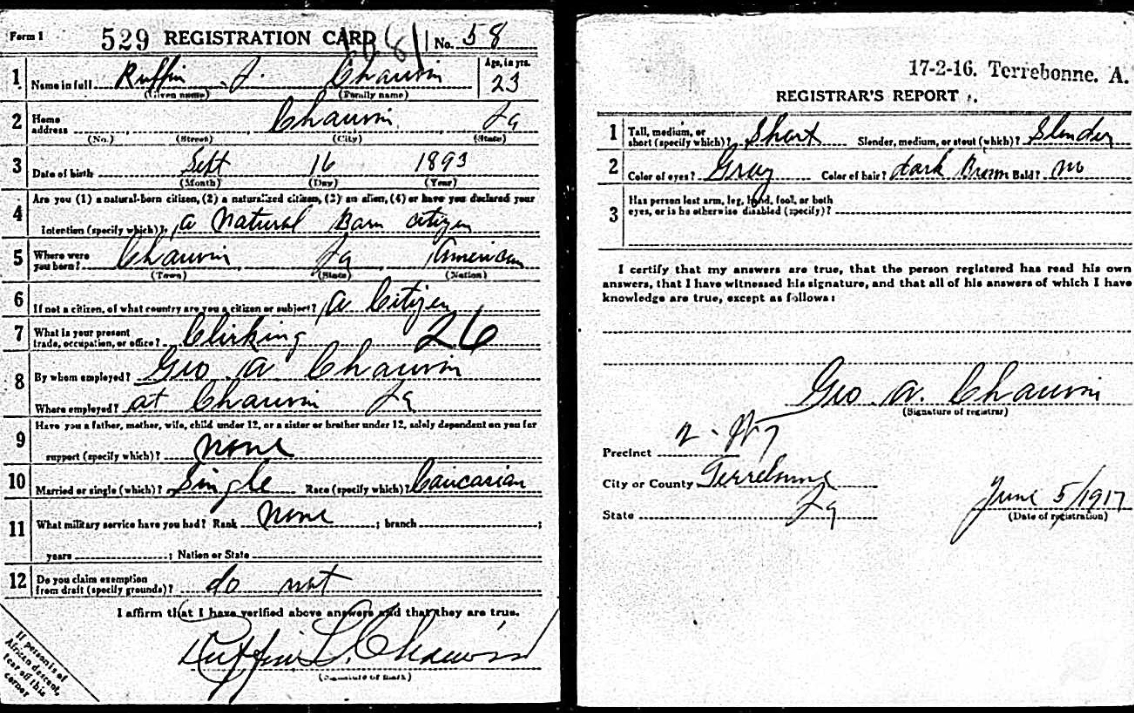 Form 1
529 REGISTRATION CARD No. 58
1 Name in full Ruffin J. Chauvin Age, in yrs. 23
(Given name) (Family name)
2 Home address Chauvin La
(No.) (Street) (City) (State)
3 Date of birth Sept 16 1893
(Month) (Day) (Year)
4 Are you (1) a natural-born citizen, (2) a naturalized citizen, (3) an alien, (4) or have you declared your
intention (specify which)? a Natural Born citizen
5 Where were you born? Chauvin La American
(Town) (State) (Nation)
6 If not a citizen, of what country are you a citizen or subject? a Citizen
7 What is your present trade, occupation, or office? Clirking 26
8 By whom employed? Geo A Chauvin
Where employed? at Chauvin La
9 Have you a father, mother, wife, child under 12, or a sister or brother under 12, solely dependent on you for
support (specify which)? none
10 Married or single (which)? Single Race (specify which)? Caucasian
11 What military service have you had? Rank None ; branch ;
years ; Nation or State
12 Do you claim exemption from draft (specify grounds)? do not
I affirm that I have verified above answers and that they are true.
Ruffin L. Chauvin
If person is of
African descent,
tear off this
corner
17-2-16. Terrebonne. A.
REGISTRAR'S REPORT
1 Tall, medium, or short (specify which)? Short Slender, medium, or stout (which)? Slender
2 Color of eyes? Gray Color of hair? dark Brown Bald? no
3 Has person lost arm, leg, hand, foot, or both
eyes, or is he otherwise disabled (specify)?
I certify that my answers are true, that the person registered has read his own
answers, that I have witnessed his signature, and that all of his answers of which I have
knowledge are true, except as follows:
Geo. A. Chauvin
(Signature of registrar)
Precinct
City or County Terrebonne
State La
June 5/1917
(Date of registration)